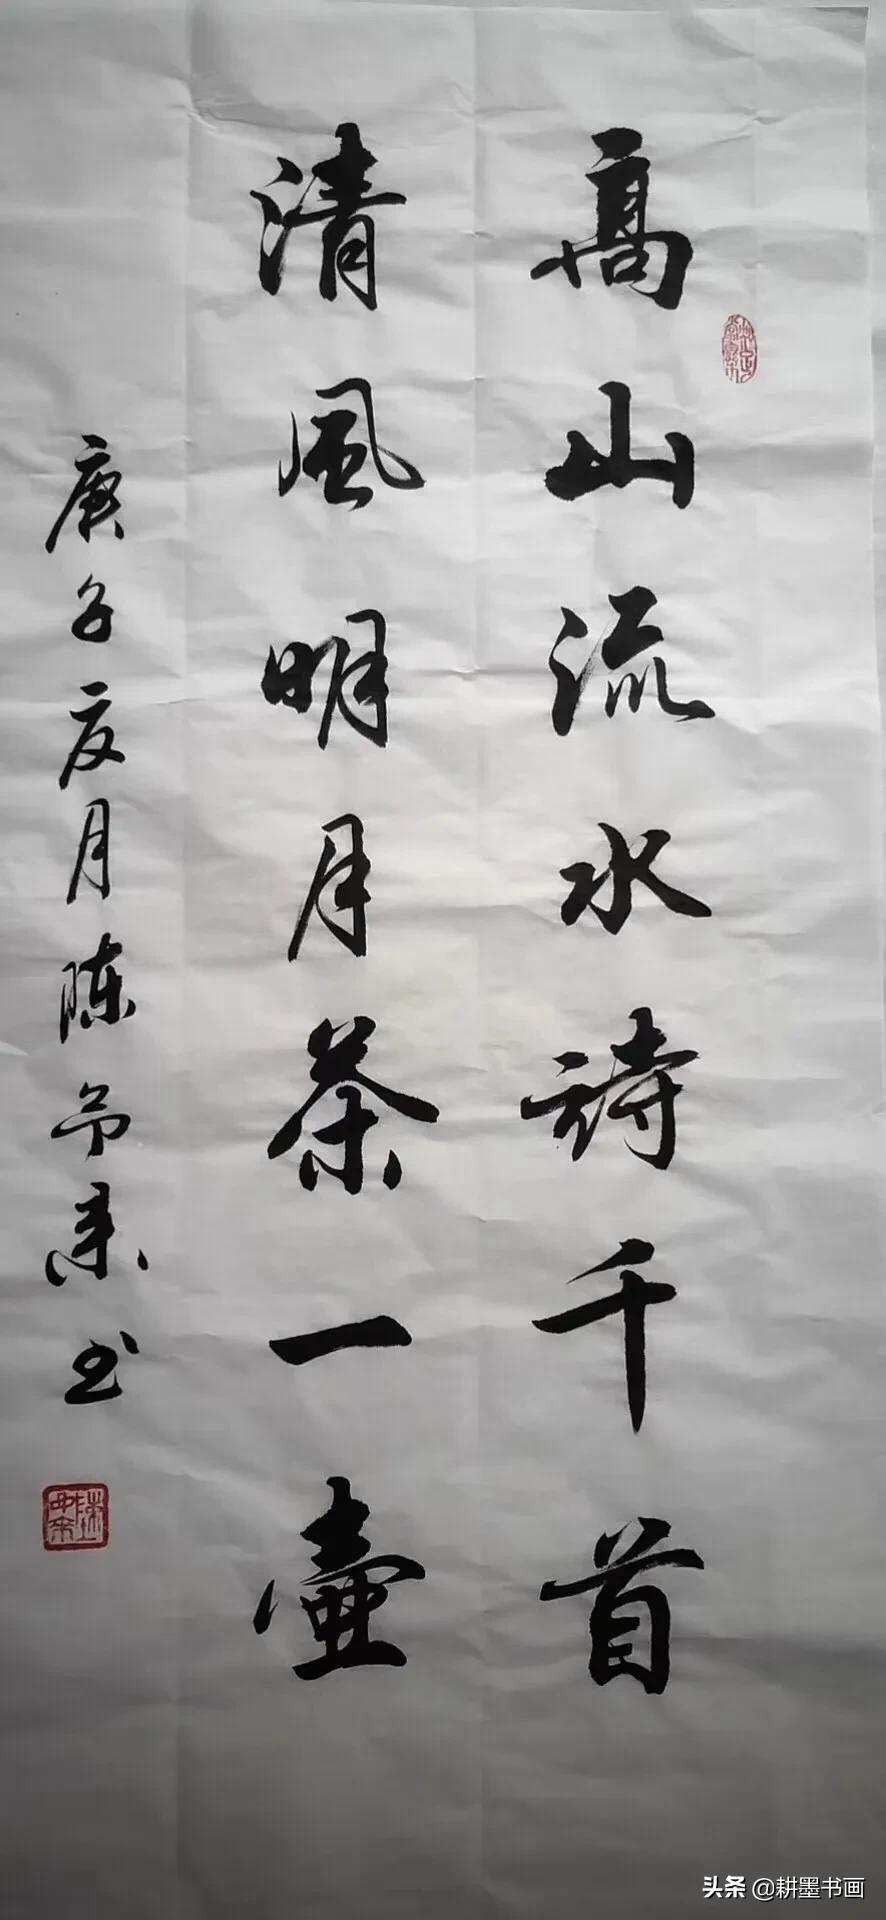 高山流水詩千首
清風明月茶一壺
庚子夏月陈予来书
头条 @耕墨书画